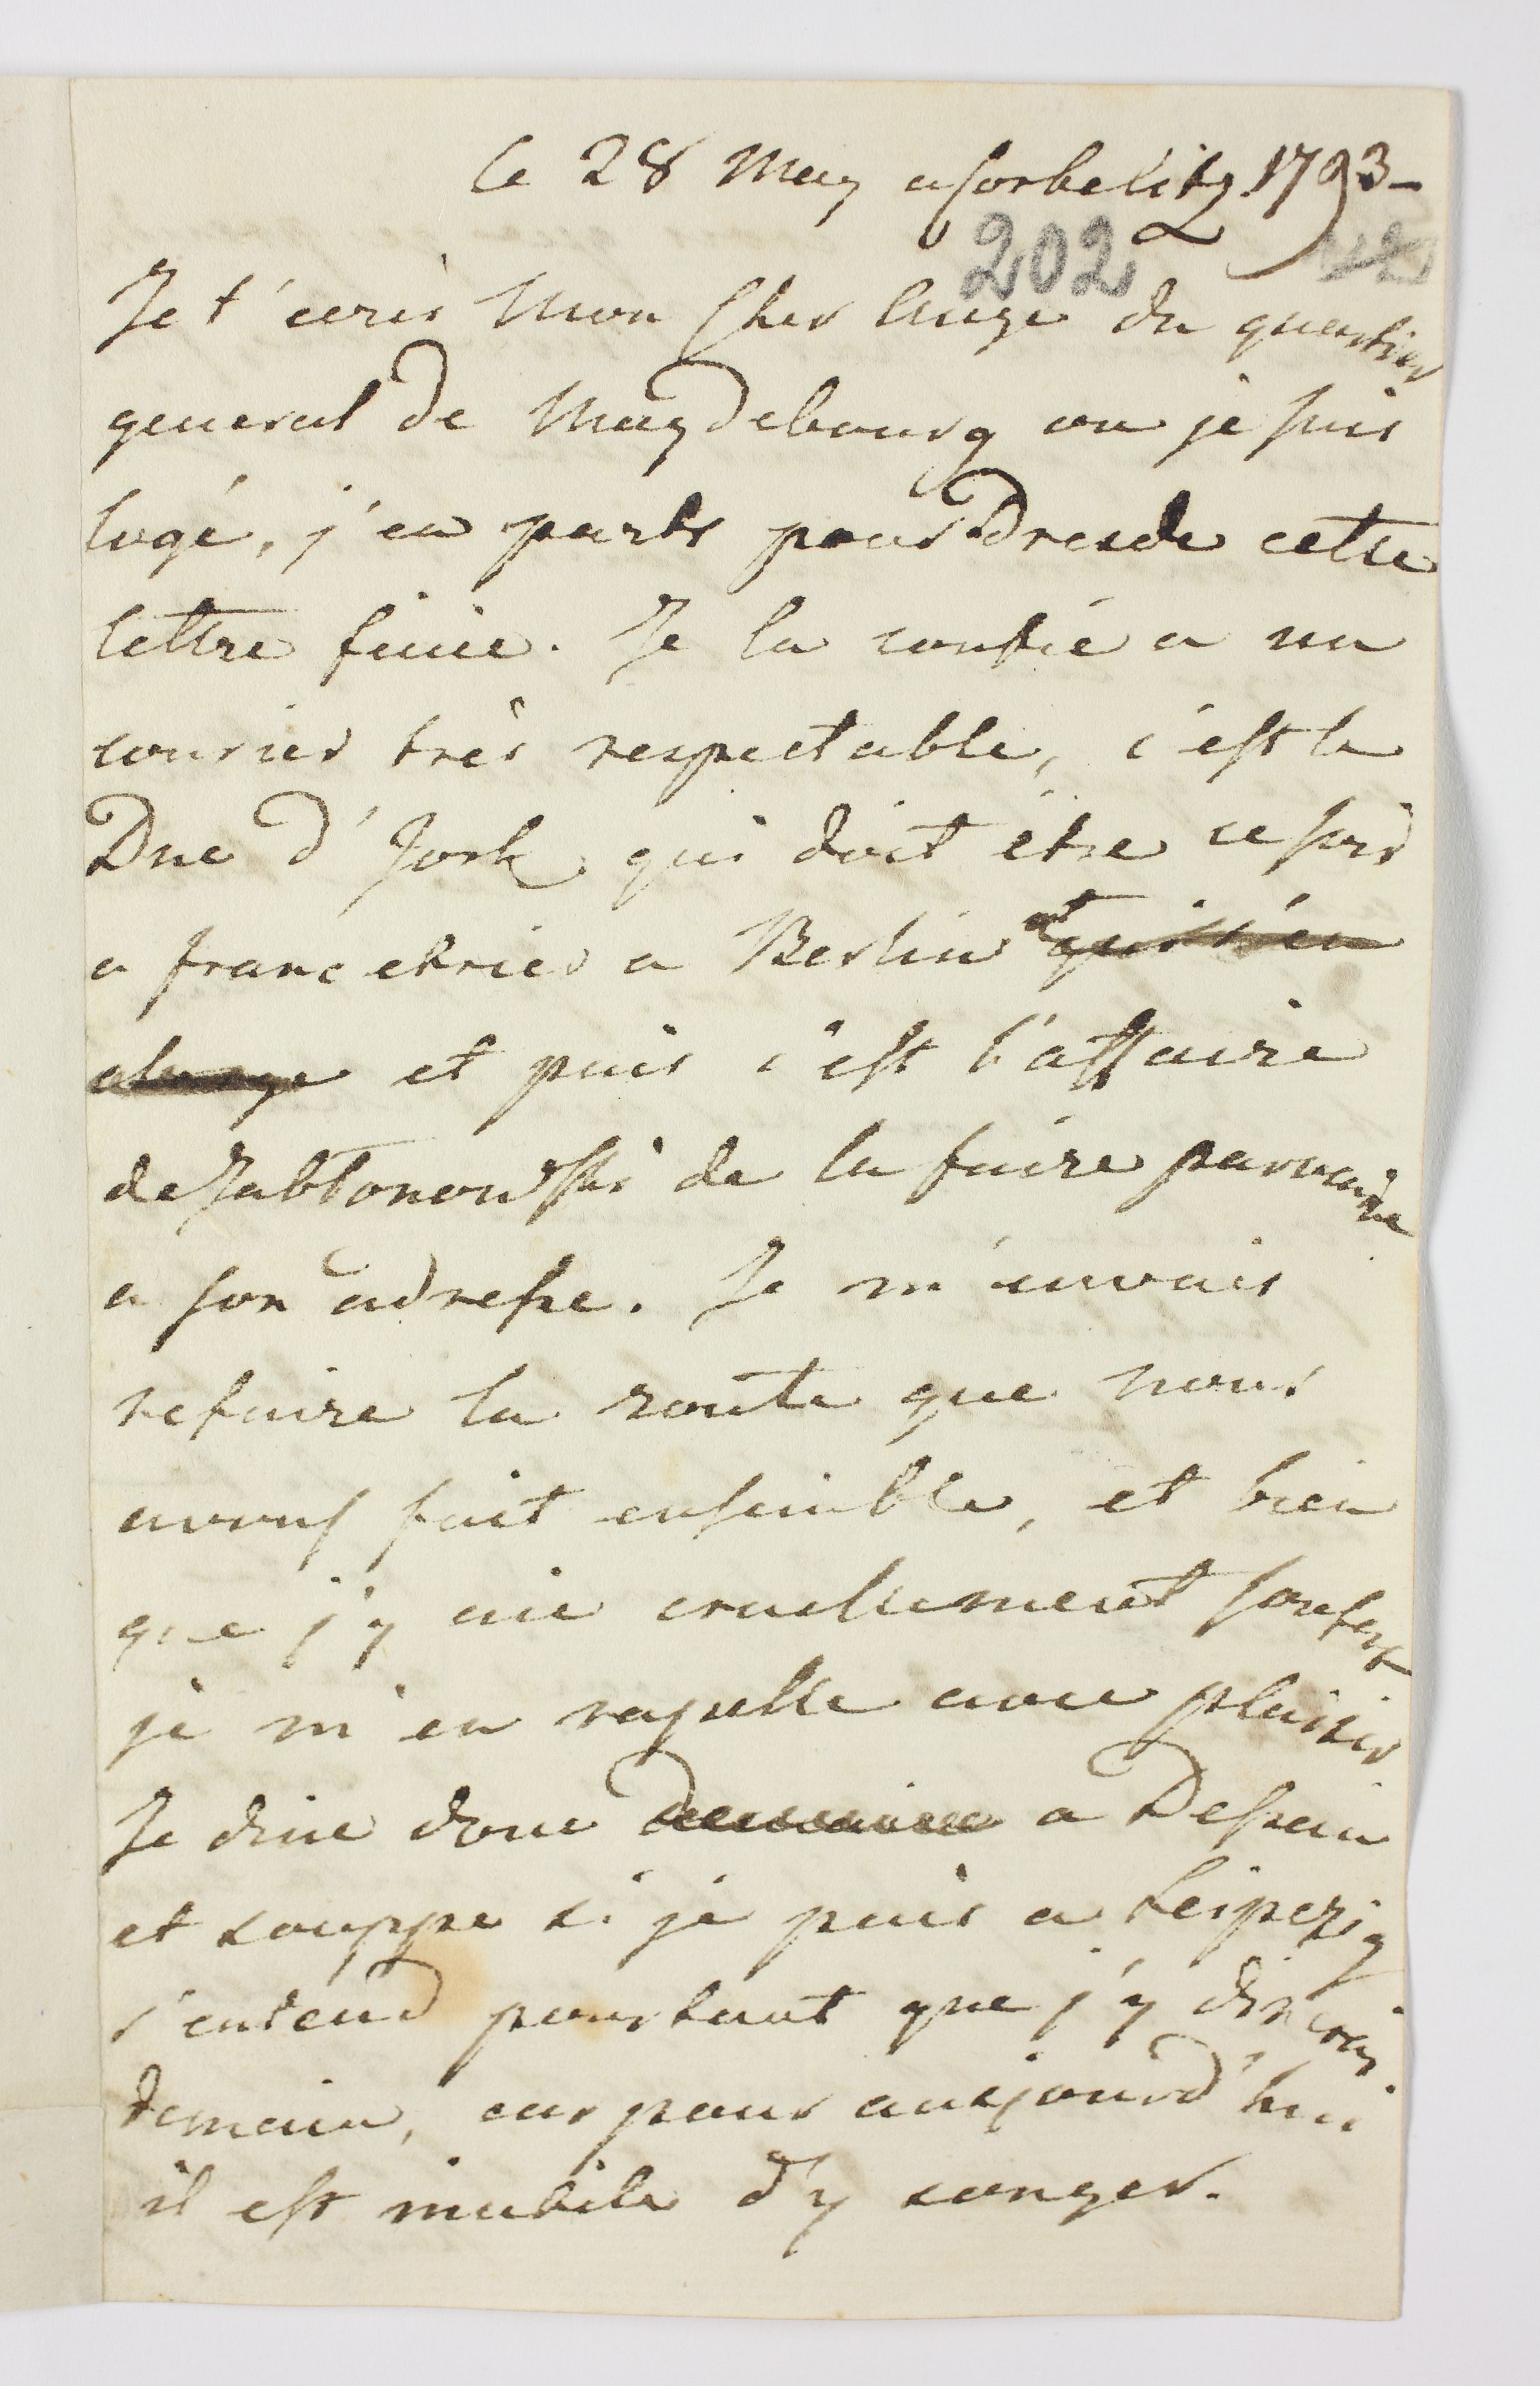 le 28 May a Corbelitz 1793-
202
Je t'ecris Mon Cher Ange du quartier
general de Magdebourg ou je suis
logé, j'en parts pour Dresde cette
lettre finie. Je la confie a un
courier très respectable, c'est le
Duc d'Jork qui doit être ce soir
a franc etrier a Berlin et qui s'en
charge et puis c'est l'affaire
de Jablonowski de la faire parvenire
a son adresse. Je m'envais
refaire la route que nous
avons fait ensemble, et bien
que j'y aie cruellement soufert
je m'en rapelle avec plaisir
Je dine donc a Dessau
et souppe si je puis a Leipczig
s'entend pourtant que j'y dinerai
demain, car pour aujourd'hui
il est inutile d'y songer.